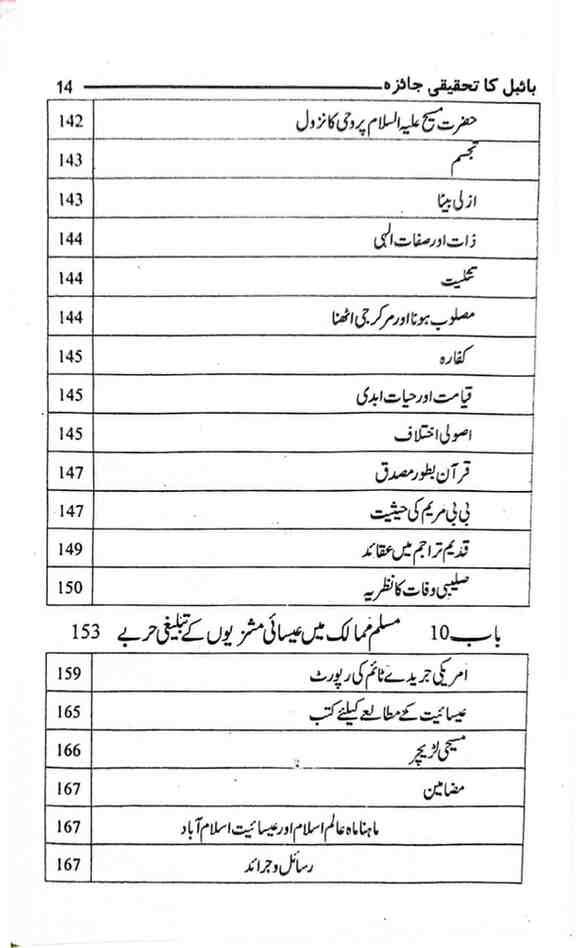 بائبل کا تحقیقی جائزہ 14
حضرت مسیح علیہ السلام پر وحی کا نزول 142
تجسم 143
ازلی بیٹا 143
ذات اور صفات الہی 144
تثلیت 144
مصلوب ہونا اور مر کر جی اٹھنا 144
کفارہ 145
قیامت اور حیات ابدی 145
اصولی اختلاف 145
قرآن بطور مصدق 147
بی بی مریم کی حیثیت 147
قدیم تراجم میں عقائد 149
صلیبی وفات کا نظریہ 150
باب 10 مسلم ممالک میں عیسائی مشنریوں کے تبلیغی حربے 153
امریکی جریدے ٹائم کی رپورٹ 159
عیسائیت کے مطالعے کیلئے کتب 165
مسیحی لڑیچر 166
مضامین 167
ماہنامہ عالم اسلام اور عیسائیت اسلام آباد 167
رسائل و جرائد 167